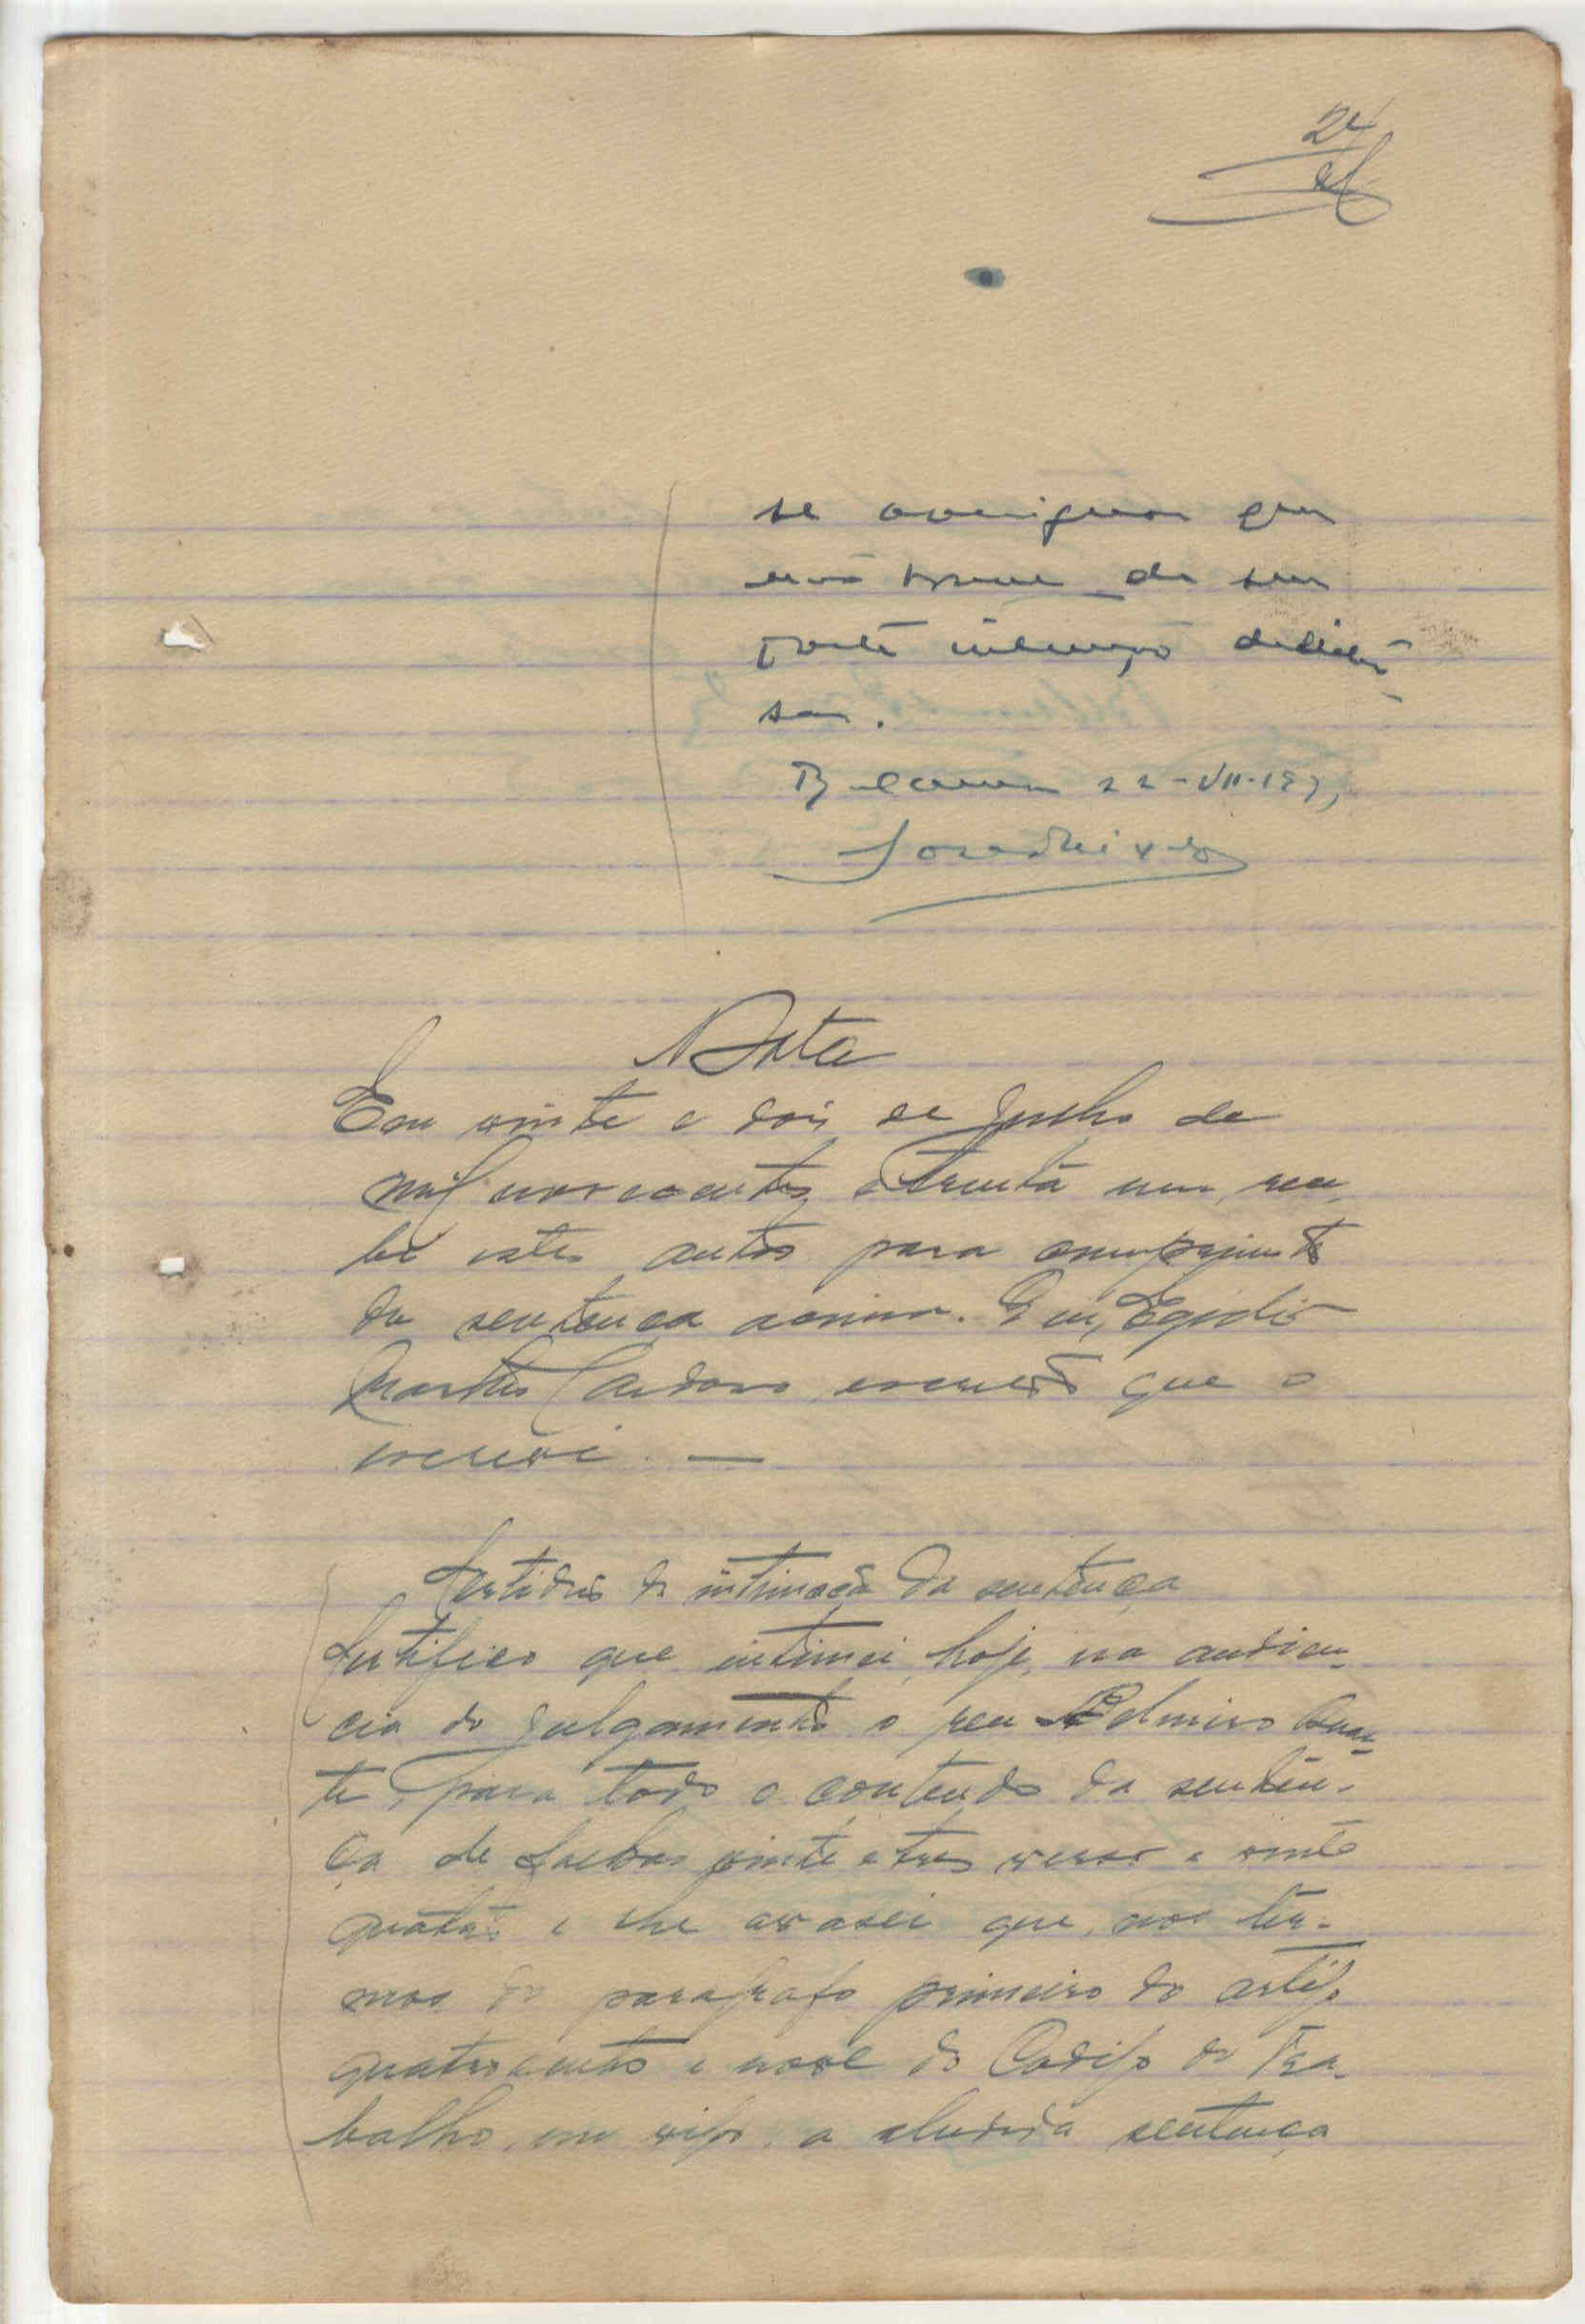 24
se averiguar que
não houve de sua
parte intenção
22-VII-193
Data
Em vinte e dois de Julho de
mil novecentos e trinta um, rece-
bi estes autos para cumprimento
da sentença acima. Eu, Egidio
Martins Cardoso, escrivão que o
escrevi. —
Certidão de intimação da sentença
Certifico que intimei, hoje, na audien-
cia do julgamento o reu Edmiro
te, para todo o conteudo da senten-
ça de folhas vinte e tres verso e vinte
quatro e lhe avisei que, nos ter-
mos do paragrafo primeiro do artigo
quatrocentos e nove do Codigo do Tra-
balho, em vigor, a aludida sentença